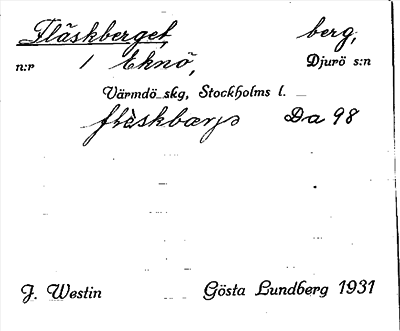 Fläskberget, berg,
n:r 1 Eknö, Djurö s:n
Värmdö skg, Stockholms l.
flèskbærjs Da 98
J. Westin Gösta Lundberg 1931